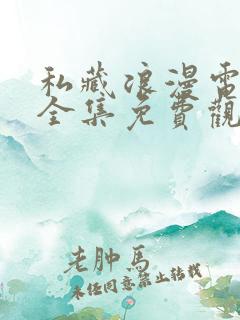 私藏浪漫電
全集免費觀
老肿马
未经同意禁止转载